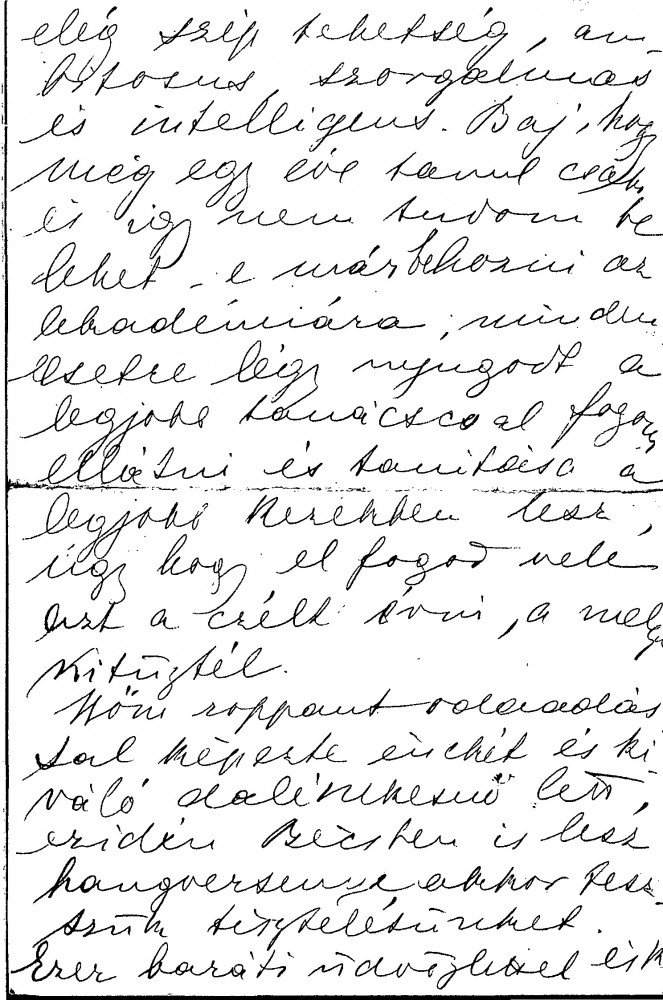 elég szép tehetség, am-
bitosus, szorgalmas
és intelligens. Baj, hogy
még egy éve tanul csak
és így nem tudom be
lehet-e már behozni az
akadémiára, minden
esetre légy nyugodt a
legjobb tanácscsal fogom
ellátni és tanitása a
legjobb kezekben lesz,
úgy hogy el fogod vele
ezt a czélt érni, a mely
kitüztél.
Nőm roppant odaadás
sal képezte énekét és ki
váló dalénekesnő lett,
ezidén Bécsben is lesz
hangversenye, akkor tesz-
szük tiszteletünket.
Ezer baráti üdvözlettel és k